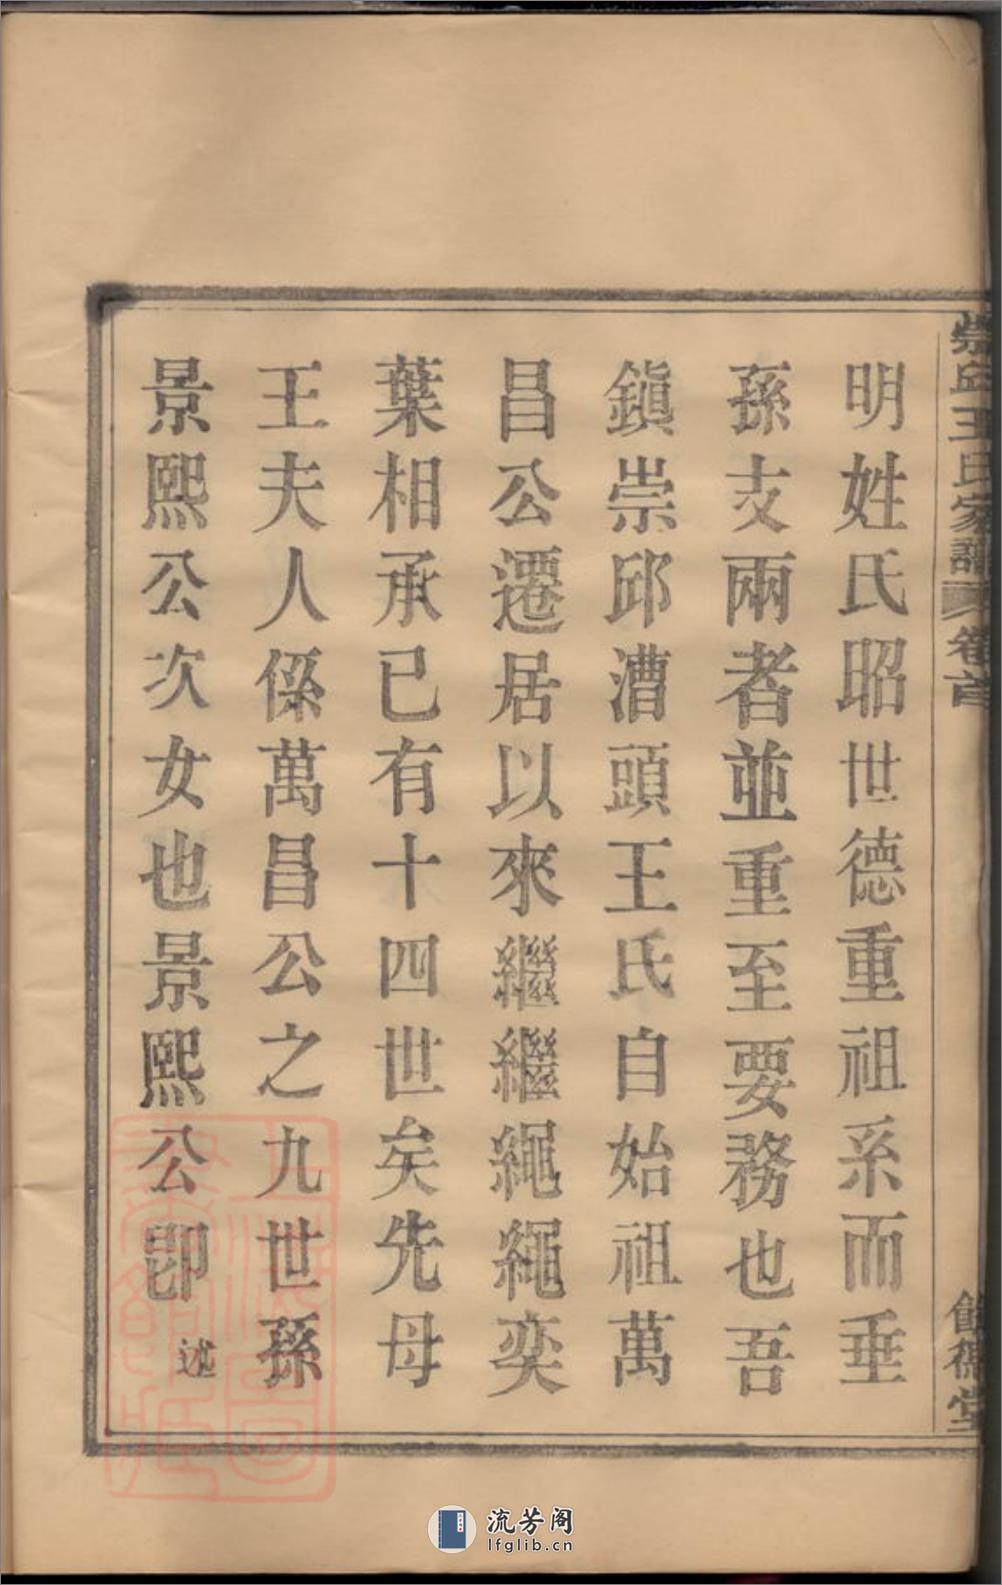 崇邱王氏家譜 卷首 德堂
明姓氏昭世德重祖系而垂
孫支兩者並重至要務也吾
鎭崇邱漕頭王氏自始祖萬
昌公遷居以來繼繼繩繩奕
葉相承已有十四世矣先母
王夫人係萬昌公之九世孫
景熙公次女也景熙公卽 述
流芳阁
lfglib.cn